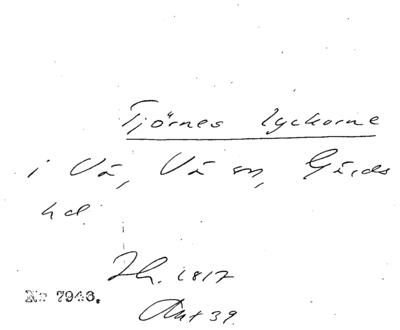 Tjörnes lyckorne
i Vä, Vä sn, Gärds
hd
Lh. 1817
No 7946.
Akt 39.